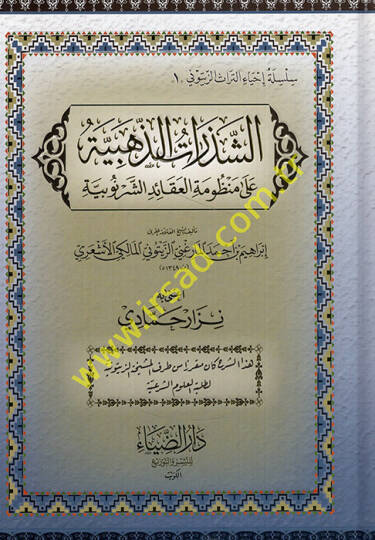 سِلْسِلَةُ إِحْيَاءِ التُّرَاثِ الزَّيْتُونِيِّ ١
الشَّذَرَاتُ الذَّهَبِيَّةُ
عَلَى مَنْظُومَةِ الْعَقَائِدِ الشَّرْنُوبِيَّةِ
إِبْرَاهِيمَ بْنِ أَحْمَدَ الْمَارْغَنِيِّ الزَّيْتُونِيِّ الْمَالِكِيِّ الْأَشْعَرِيِّ
(ت ١٣٤٩هـ)
نِزَارْ حَمَّادِي
هذا الشرح كان مقررا من طرف المشيخة الزيتونية
لطلبة العلوم الشرعية
دَارُ الضِّيَاءِ
للنشر والتوزيع
الكويت
www.irsad.com.tr